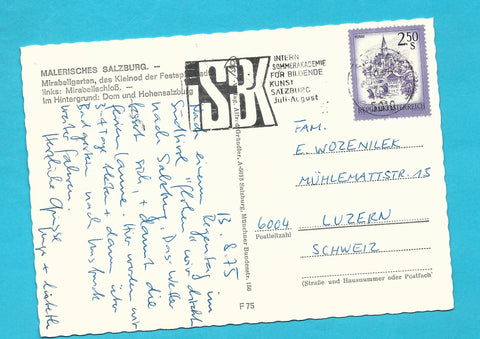 MALERISCHES SALZBURG. –
Mirabellgarten, das Kleinod der Festspielstadt
links: Mirabellschloß. –
Im Hintergrund: Dom und Hohensalzburg
SBK
INTERN
SOMMERAKADEMIE
FÜR BILDENDE
KUNST
SALZBURG
Juli-August
2.50
S
REPUBLIK ÖSTERREICH
13.8.75
Nach einem Regentag im
Südtirol direkt
nach Salzburg. Das Wetter
bessert sich, + damit die
Hier werden wir
3-4 Tage bleiben + dann über
nach Innsbruck
weiter fahren.
Herzliche Grüsse
A-5013 Salzburg, Münchner Bundesstr. 156
F 75
FAM.
E. WOZENILEK
MÜHLEMATTSTR. 15
6004 LUZERN
Postleitzahl
SCHWEIZ
(Straße und Hausnummer oder Postfach)